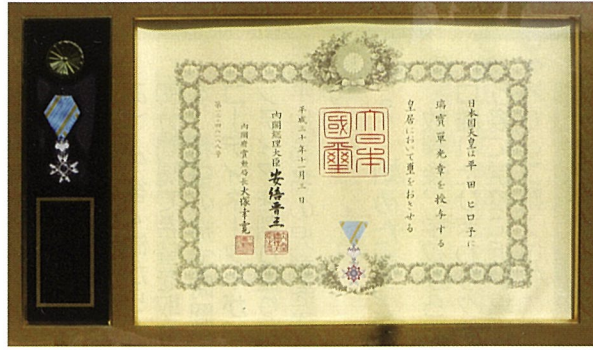 日本国天皇は平田ヒロ子に
瑞寳單光章を授与する
皇居において璽をおさせる
大日本
國璽
平成三十年十一月三日
内閣総理大臣 安倍晋三
内閣府賞勲局長 大塚幸寛